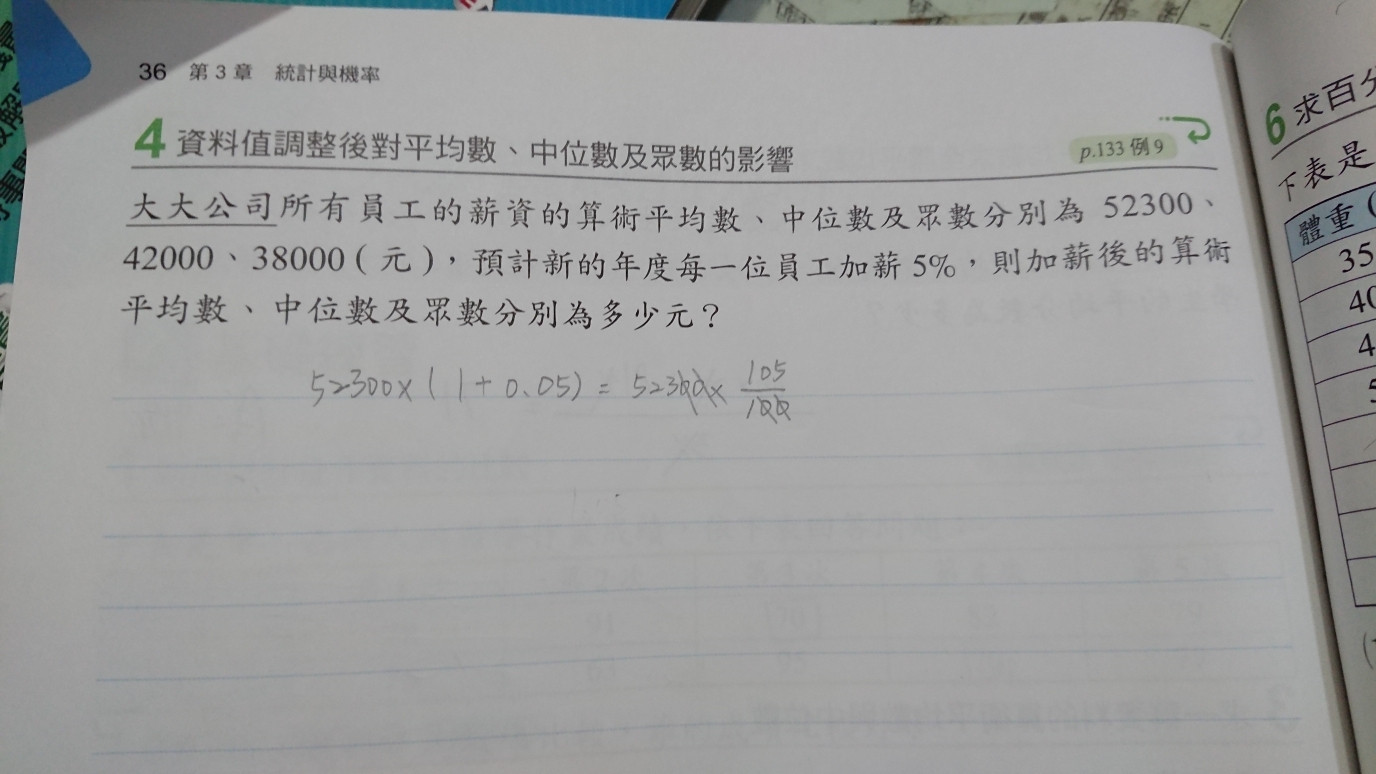 36 第3章 統計與機率
4 資料值調整後對平均數、中位數及眾數的影響
p.133 例9
大大公司所有員工的薪資的算術平均數、中位數及眾數分別為 52300、
42000、38000(元),預計新的年度每一位員工加薪 5%,則加薪後的算術
平均數、中位數及眾數分別為多少元?
52300×(1+0.05)= 52300× 105/100
6 求百分
下表是
體重(
35
40
4
5